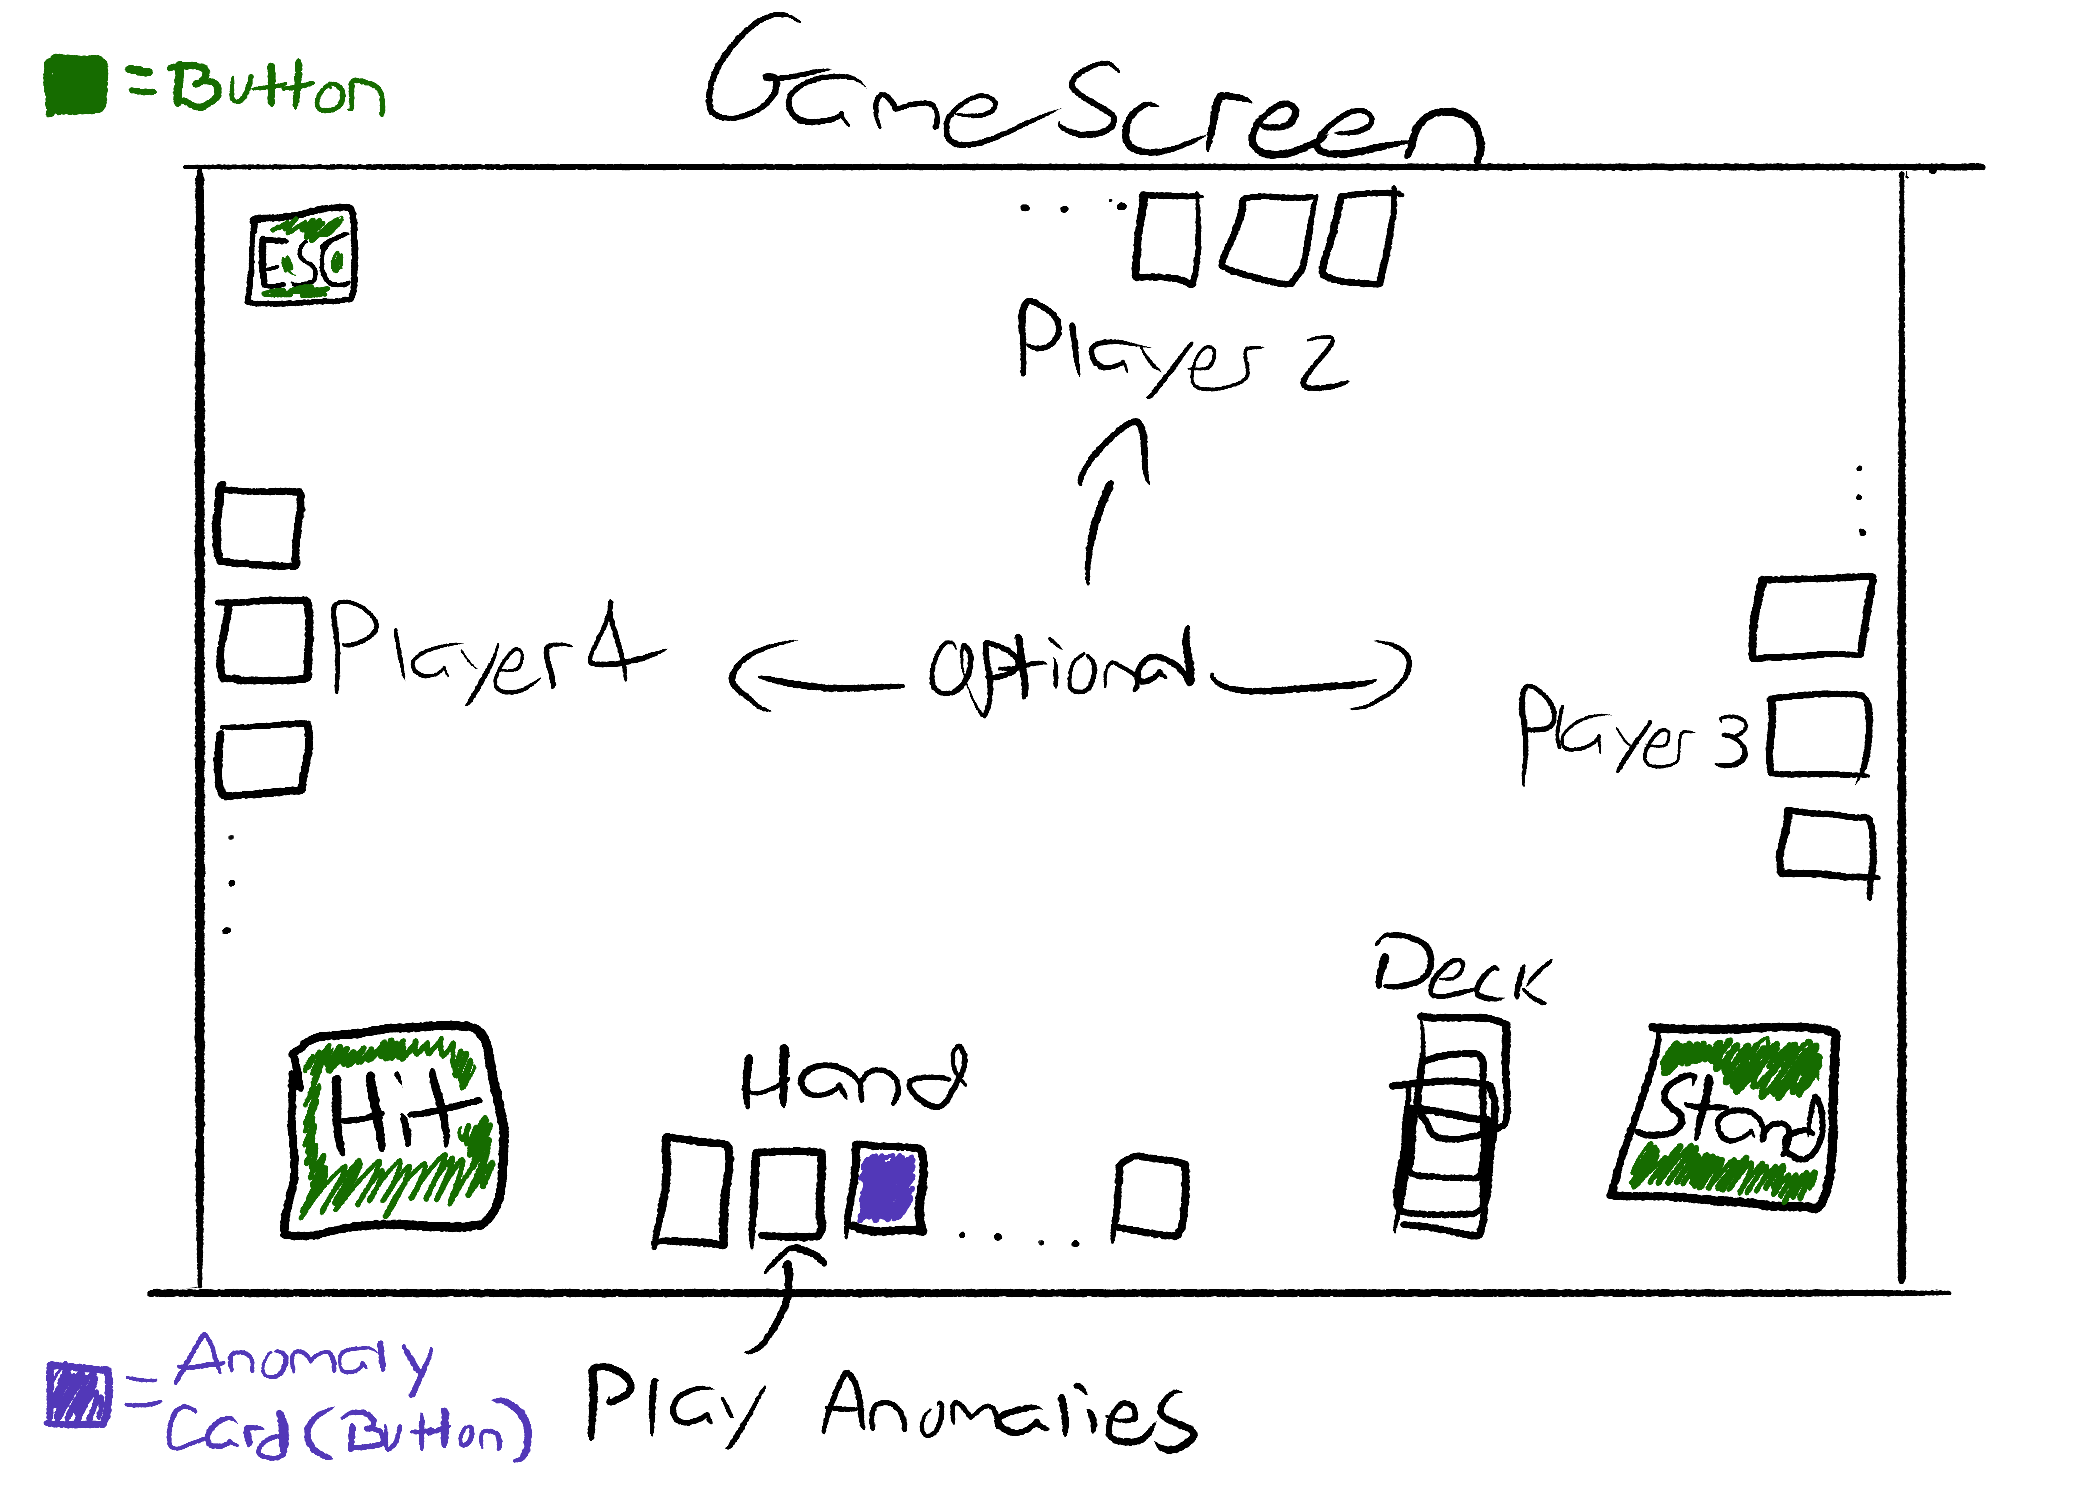 Game Screen
= Button
ESC
Player 2
Player 4
optional
Player 3
Deck
Hand
Hit
Stand
= Anomaly
Card (Button)
Play Anomalies